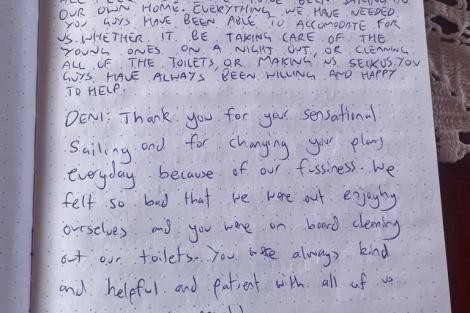 OUR OWN HOME. EVERYTHING WE HAVE NEEDED
YOU GUYS HAVE BEEN ABLE TO ACCOMODATE FOR
US. WHETHER IT BE TAKING CARE OF THE
YOUNG ONES ON A NIGHT OUT, OR CLEANING
ALL OF THE TOILETS, OR MAKING US SEIKUS. YOU
GUYS HAVE ALWAYS BEEN WILLING AND HAPPY
TO HELP.
DENI: Thank you for your sensational
Sailing and for changing your plans
everyday because of our fussiness. We
felt so bad that we were out enjoying
ourselves and you were on board cleaning
out our toilets. You were always kind
and helpful and patient with all of us